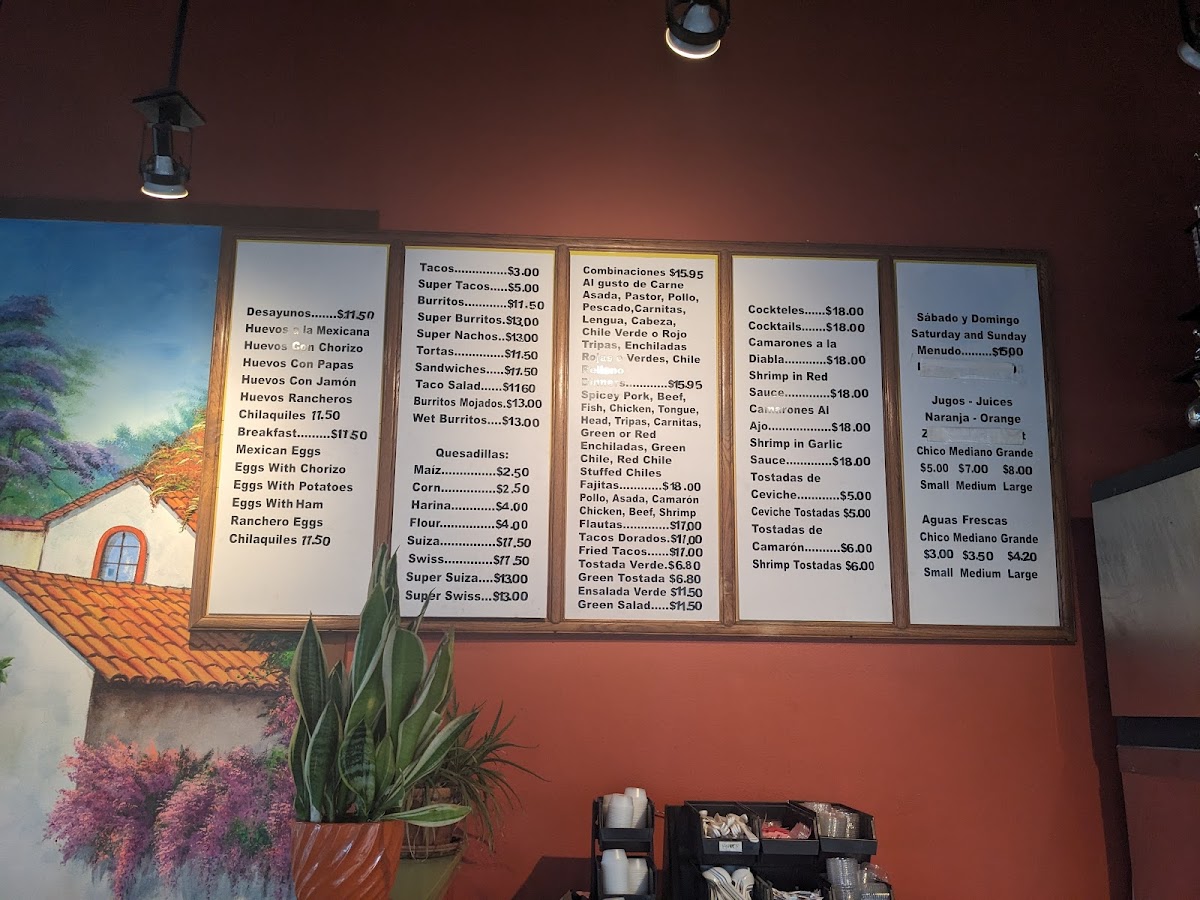 Desayunos.......$11.50
Huevos a la Mexicana
Huevos Con Chorizo
Huevos Con Papas
Huevos Con Jamón
Huevos Rancheros
Chilaquiles 11.50
Breakfast.........$11.50
Mexican Eggs
Eggs With Chorizo
Eggs With Potatoes
Eggs With Ham
Ranchero Eggs
Chilaquiles 11.50
Tacos...............$3.00
Super Tacos.....$5.00
Burritos............$11.50
Super Burritos.$13.00
Super Nachos..$13.00
Tortas...............$11.50
Sandwiches.....$11.50
Taco Salad......$11.60
Burritos Mojados.$13.00
Wet Burritos....$13.00
Quesadillas:
Maíz...............$2.50
Corn...............$2.50
Harina............$4.00
Flour...............$4.00
Suiza...............$11.50
Swiss.............$11.50
Super Suiza....$13.00
Super Swiss...$13.00
Combinaciones $15.95
Al gusto de Carne
Asada, Pastor, Pollo,
Pescado,Carnitas,
Lengua, Cabeza,
Chile Verde o Rojo
Tripas, Enchiladas
Rojas o Verdes, Chile
Relleno
Dinners............$15.95
Spicey Pork, Beef,
Fish, Chicken, Tongue,
Head, Tripas, Carnitas,
Green or Red
Enchiladas, Green
Chile, Red Chile
Stuffed Chiles
Fajitas............$18.00
Pollo, Asada, Camarón
Chicken, Beef, Shrimp
Flautas.............$17.00
Tacos Dorados.$17.00
Fried Tacos......$17.00
Tostada Verde.$6.80
Green Tostada $6.80
Ensalada Verde $11.50
Green Salad.....$11.50
Cockteles......$18.00
Cocktails......$18.00
Camarones a la
Diabla............$18.00
Shrimp in Red
Sauce.............$18.00
Camarones Al
Ajo..................$18.00
Shrimp in Garlic
Sauce.............$18.00
Tostadas de
Ceviche............$5.00
Ceviche Tostadas $5.00
Tostadas de
Camarón..........$6.00
Shrimp Tostadas $6.00
Sábado y Domingo
Saturday and Sunday
Menudo.........$15.00
Jugos - Juices
Naranja - Orange
Chico Mediano Grande
$5.00 $7.00 $8.00
Small Medium Large
Aguas Frescas
Chico Mediano Grande
$3.00 $3.50 $4.20
Small Medium Large